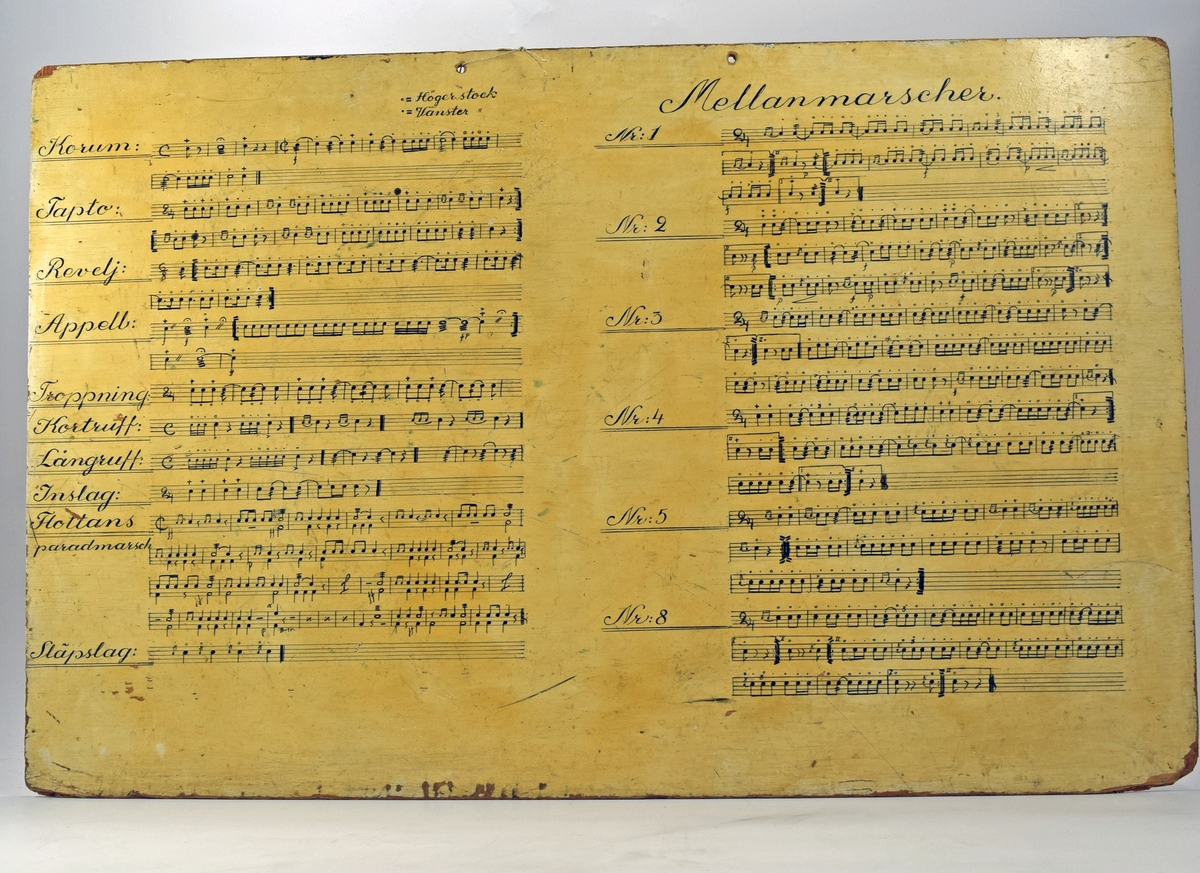 ·= Höger stock
·= Vänster "
Korum:
Tapto:
Revelj:
Appelb:
Troppning
Kortruff:
Långruff:
Inslag:
Flottans
paradmarsch
Släpslag:
Mellanmarscher.
Nr:1
Nr:2
Nr:3
Nr:4
Nr:5
Nr:8